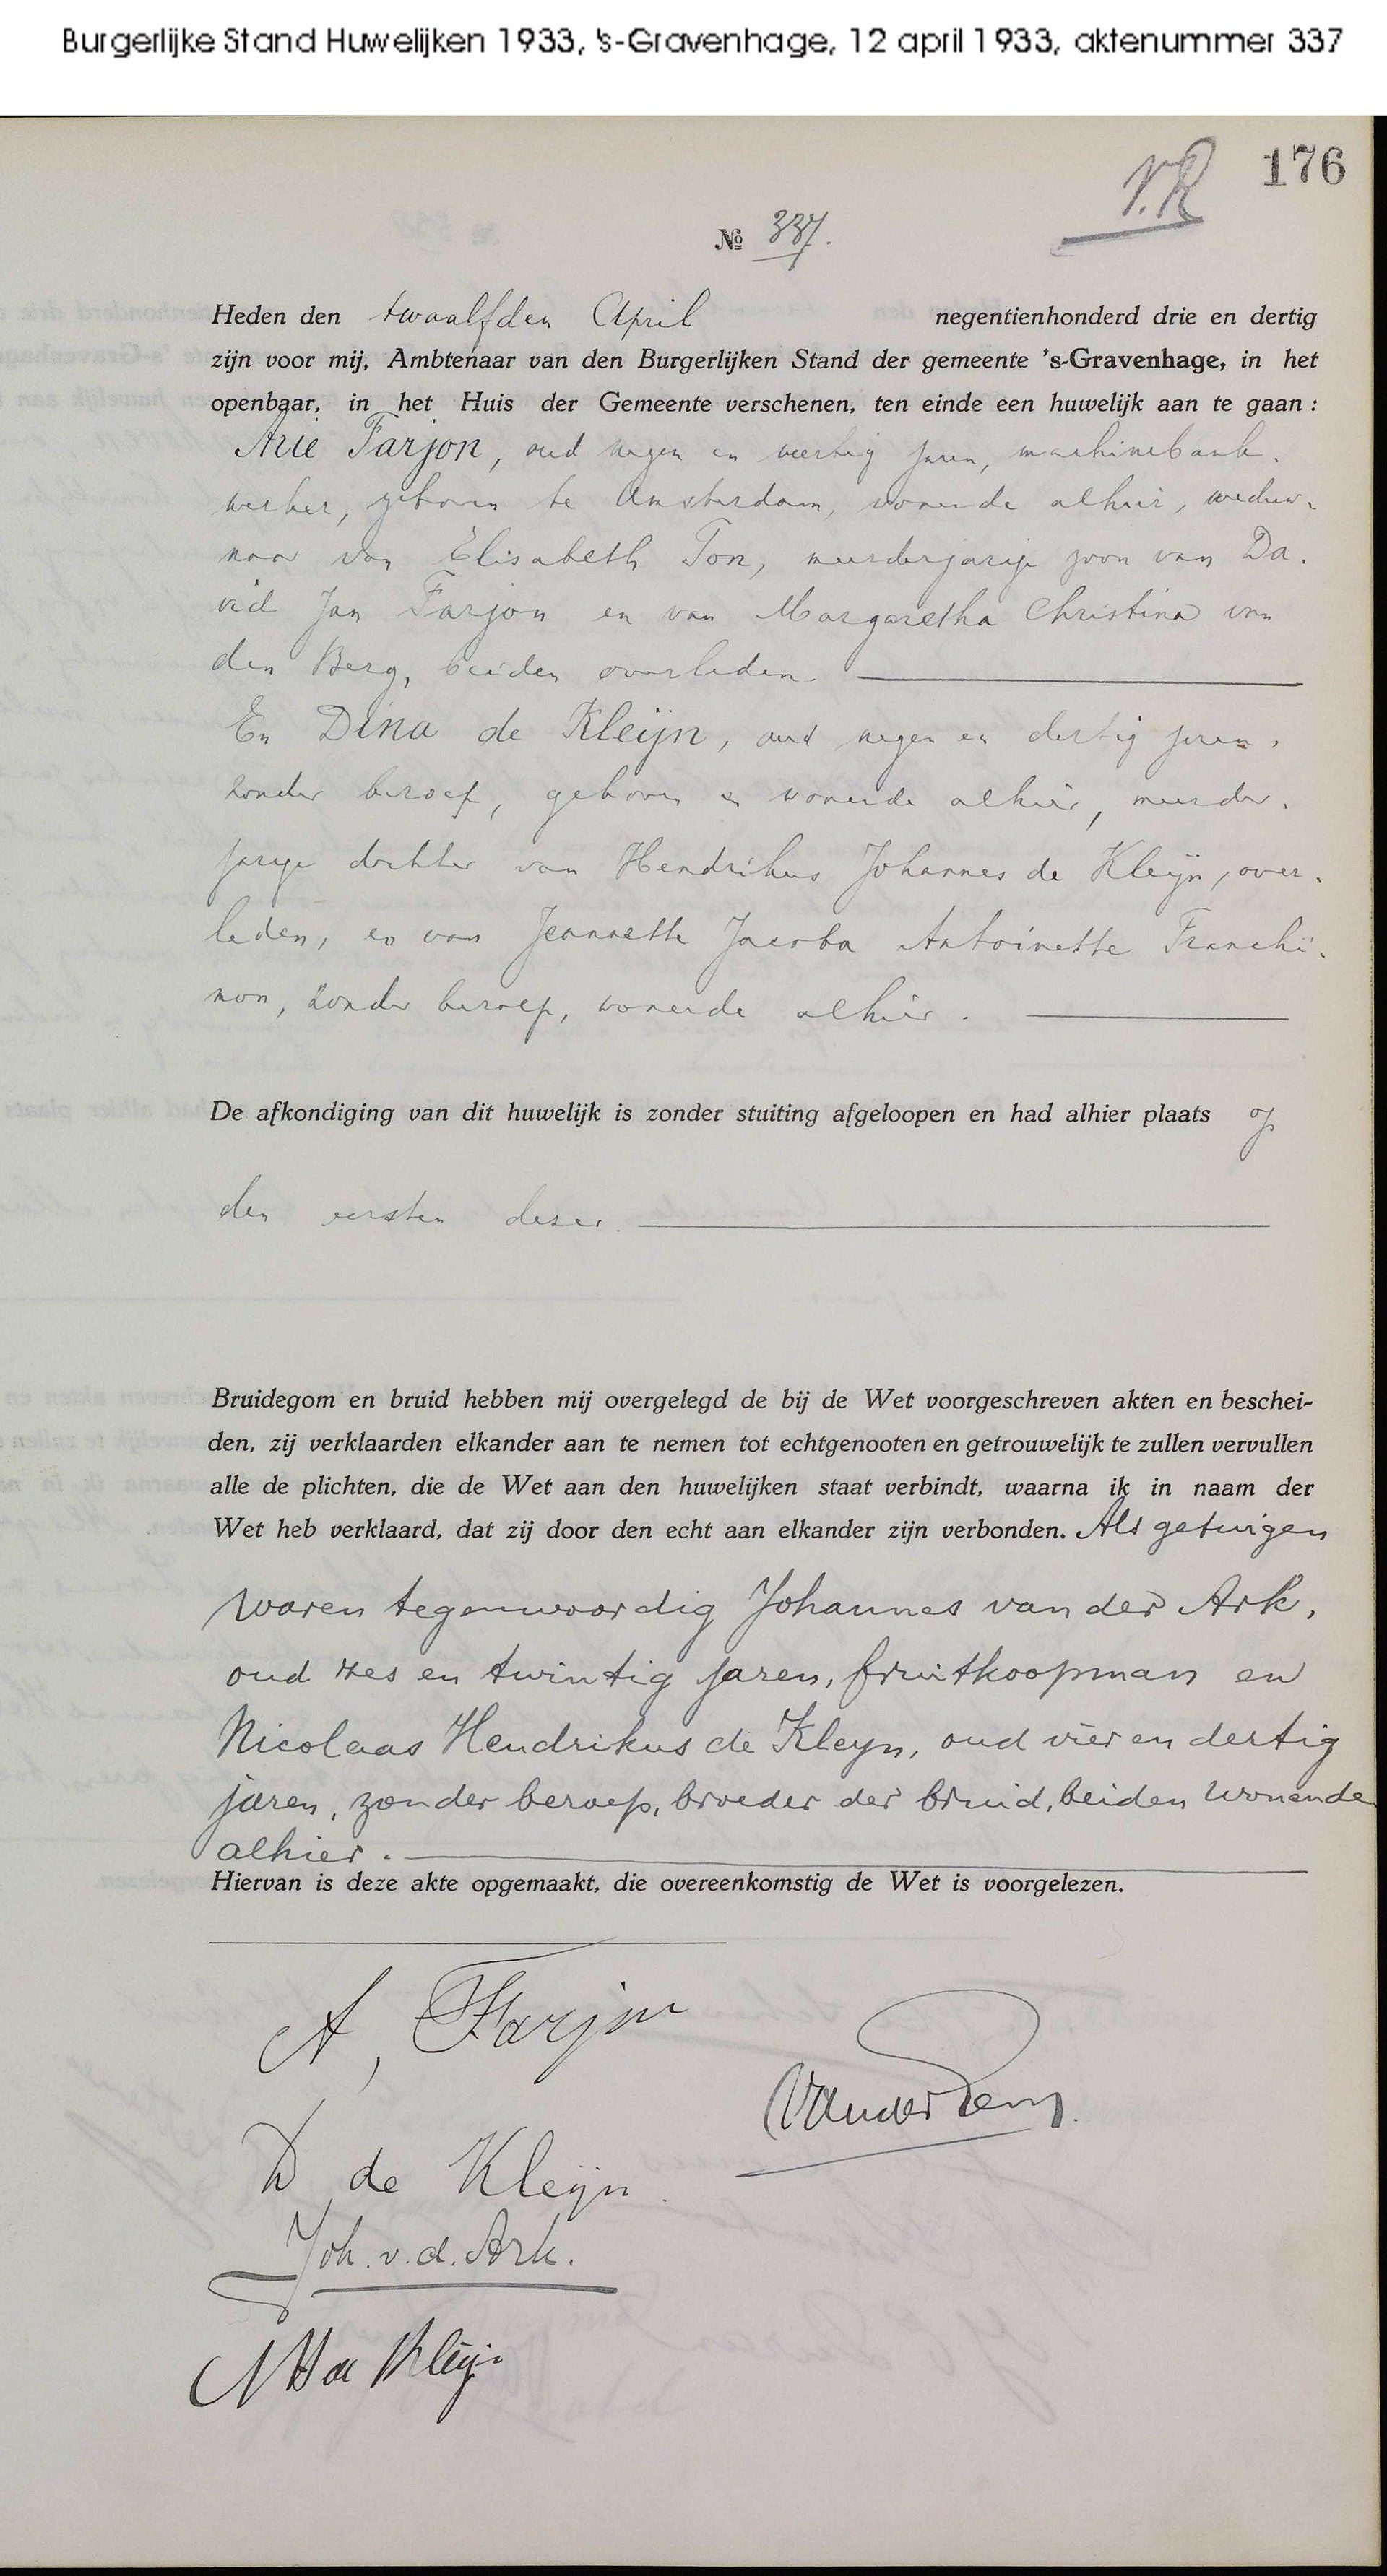 Burgerlijke Stand Huwelijken 1933, 's-Gravenhage, 12 april 1933, aktenummer 337
176
V.R
№ 337.
Heden den twaalfden April negentienhonderd drie en dertig
zijn voor mij, Ambtenaar van den Burgerlijken Stand der gemeente 's-Gravenhage, in het
openbaar, in het Huis der Gemeente verschenen, ten einde een huwelijk aan te gaan:
Arie Farjon, oud negen en veertig jaren, machinebank-
werker, geboren te Amsterdam, wonende alhier, weduw-
naar van Elisabeth Ton, meerderjarige zoon van Da-
vid Jan Farjon en van Margaretha Christina van
den Berg, beiden overleden.
En Dina de Kleijn, oud negen en dertig jaren,
zonder beroep, geboren en wonende alhier, meerder-
jarige dochter van Hendrikus Johannes de Kleijn, over-
leden, en van Jeannette Jacoba Antoinette Franchi-
mon, zonder beroep, wonende alhier.
De afkondiging van dit huwelijk is zonder stuiting afgeloopen en had alhier plaats op
den eersten dezer.
Bruidegom en bruid hebben mij overgelegd de bij de Wet voorgeschreven akten en beschei-
den, zij verklaarden elkander aan te nemen tot echtgenooten en getrouwelijk te zullen vervullen
alle de plichten, die de Wet aan den huwelijken staat verbindt, waarna ik in naam der
Wet heb verklaard, dat zij door den echt aan elkander zijn verbonden. Als getuigen
waren tegenwoordig Johannes van der Ark,
oud zes en twintig jaren, fruitkoopman en
Nicolaas Hendrikus de Kleyn, oud vier en dertig
jaren, zonder beroep, broeder der bruid, beiden wonende
alhier.
Hiervan is deze akte opgemaakt, die overeenkomstig de Wet is voorgelezen.
A, Farjon
D de Kleijn
Joh. v. d. Ark.
NH de Kleijn